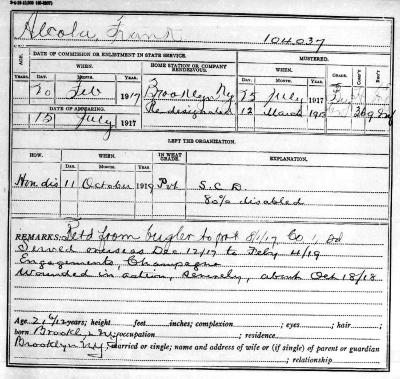 Alcola Frank
104037
AGE.
DATE OF COMMISSION OR ENLISTMENT IN STATE SERVICE.
WHEN.
HOME STATION OR COMPANY RENDEZVOUS.
MUSTERED.
WHEN.
GRADE.
CO'Y
REG'T
YEARS. DAY. MONTH. YEAR. DAY. MONTH. YEAR.
20 Feb 1917 Brooklyn Ny 25 July 1917
DATE OF APPEARING.
Re-designated 12 March 1918
15 July 1917
LEFT THE ORGANIZATION.
HOW. WHEN. IN WHAT GRADE. EXPLANATION.
DAY. MONTH. YEAR.
Hon. dis 11 October 1919 Pvt S.C.D.
80% disabled
REMARKS: Retd from bugler to pvt 8/1/17 Co
Served overseas Dec 12/17 to Feby 4/19
Engagements, Champagne
Wounded in action, severely, about Oct 18/18
Age 21 years; height feet inches; complexion ; eyes ; hair ;
born Brooklyn Ny occupation ; residence
Brooklyn Ny married or single; name and address of wife or (if single) of parent or guardian
; relationship